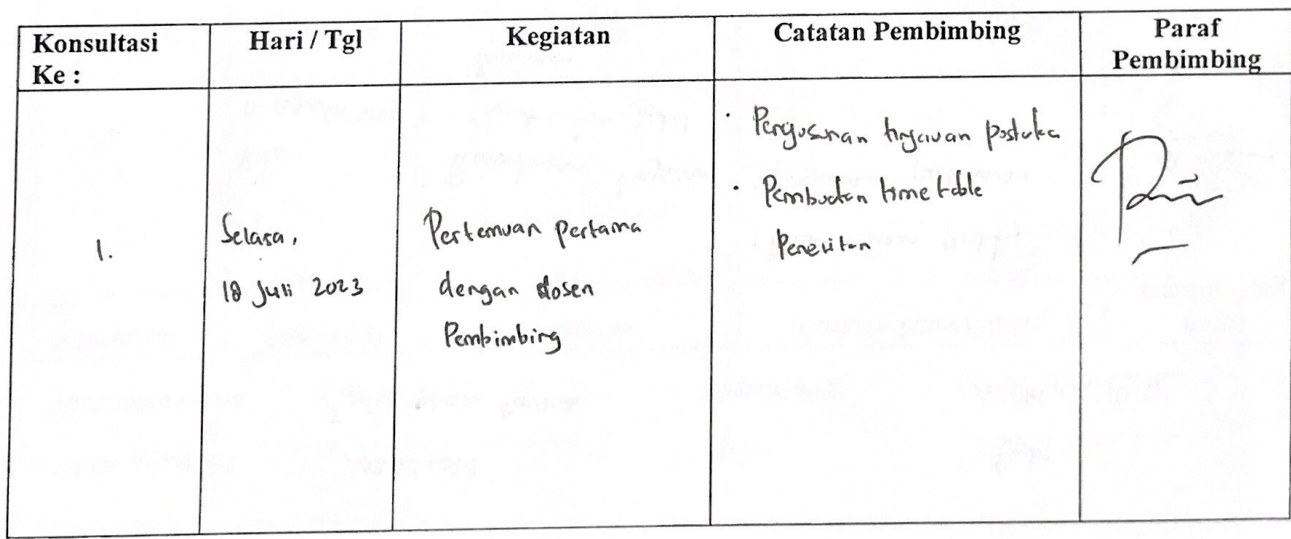 Konsultasi Ke :
Hari / Tgl
Kegiatan
Catatan Pembimbing
Paraf Pembimbing
1.
Selasa,
18 Juli 2023
Pertemuan pertama
dengan dosen
Pembimbing
• Penyusunan tinjauan pustaka
• Pembuatan timetable
Penelitian